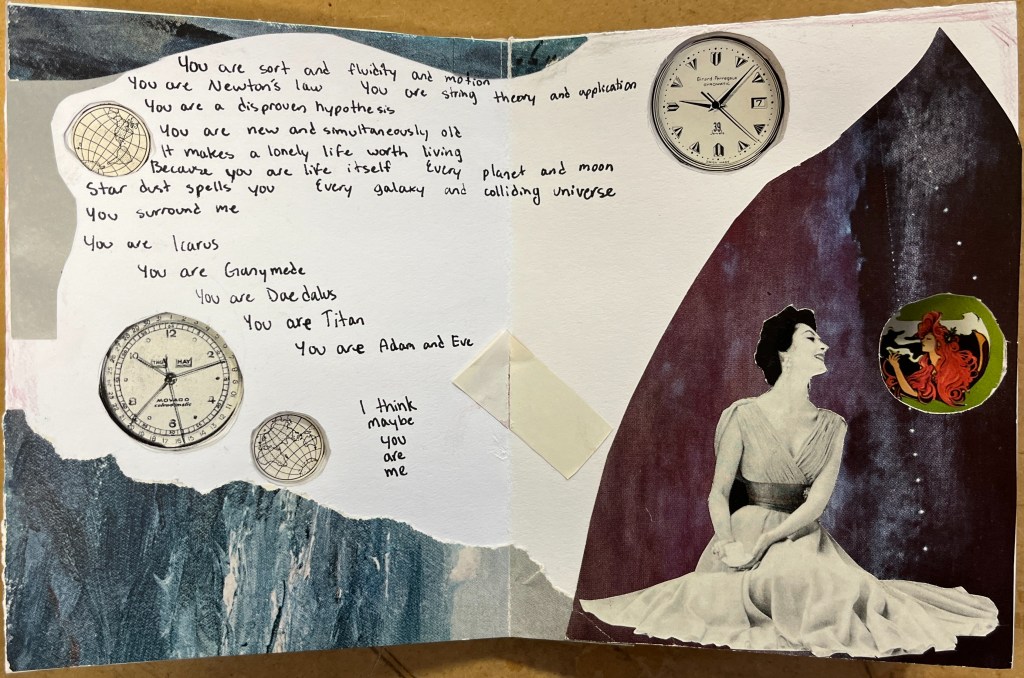 You are sort and fluidity and motion
You are Newton's law You are string theory and application
You are a disproven hypothesis
You are new and simultaneously old
It makes a lonely life worth living
Because you are life itself Every planet and moon
Star dust spells you Every galaxy and colliding universe
You surround me
You are Icarus
You are Ganymede
You are Daedalus
You are Titan
You are Adam and Eve
I think
maybe
you
are
me
Girard-Perregaux
GYROMATIC
7
39
12
THU MAY
MOVADO
calendomatic
6